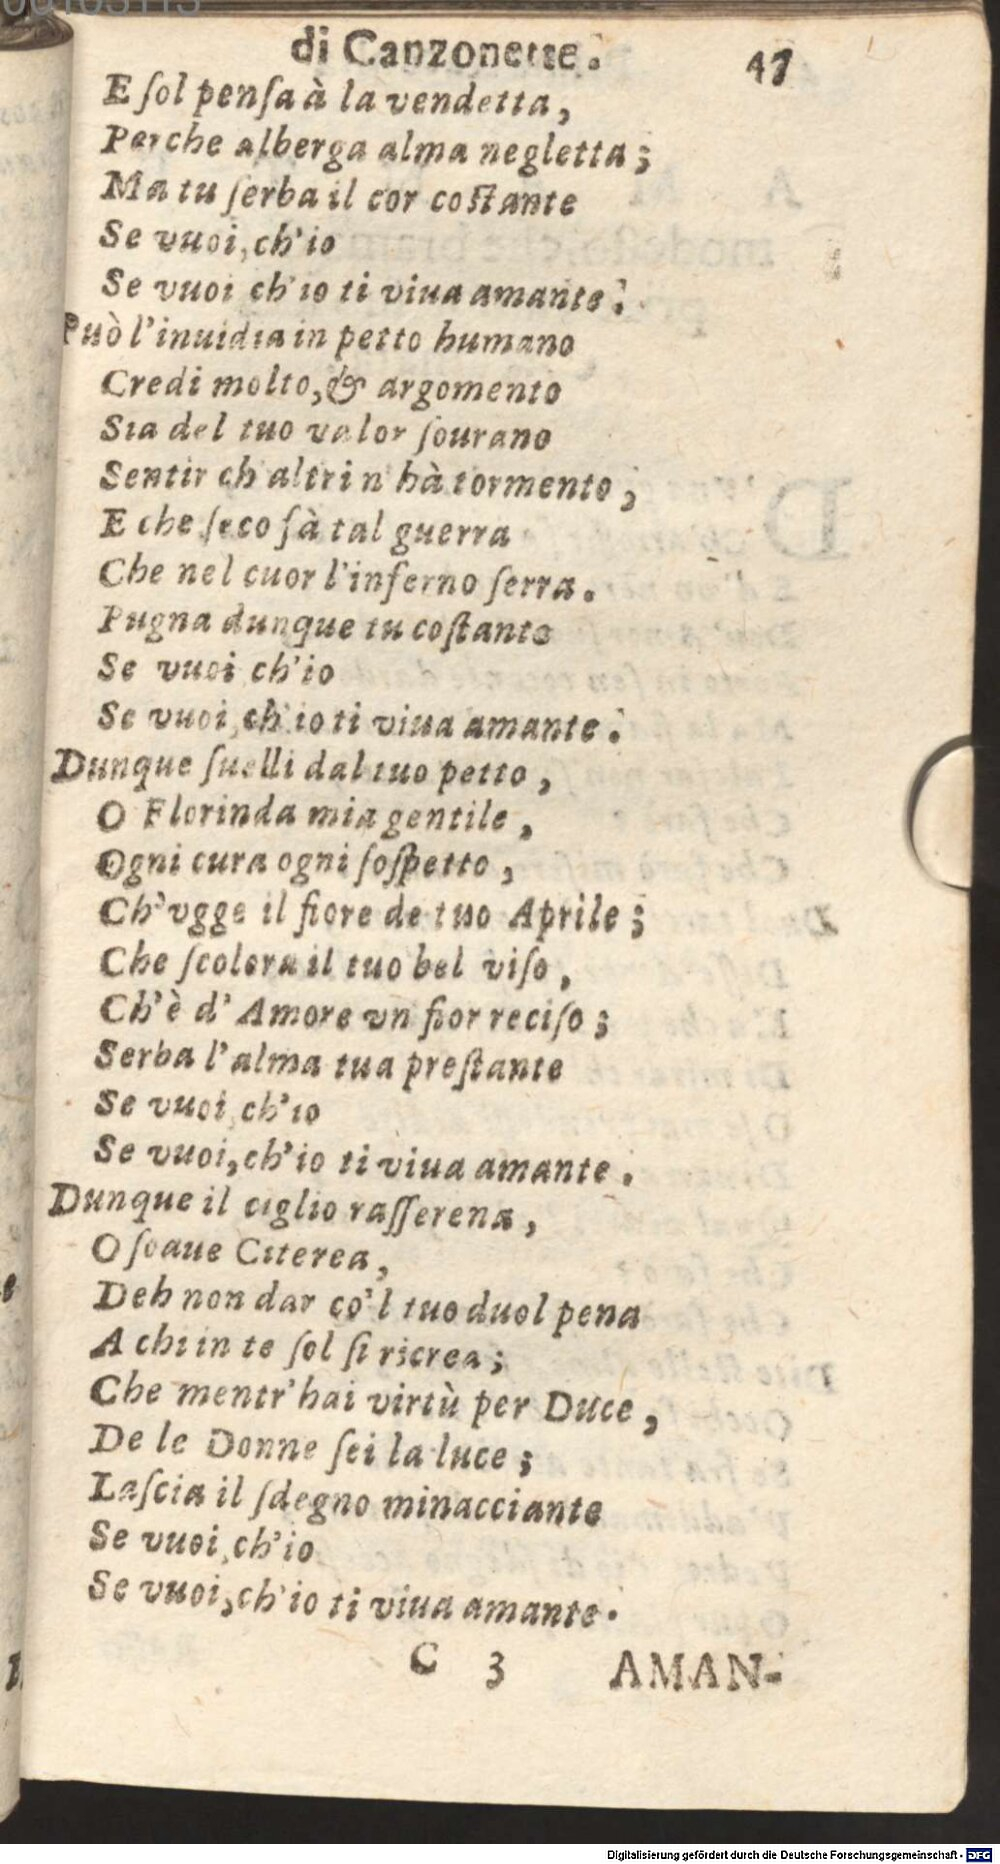 di Canzonette. 47
E ſol penſa à la vendetta,
Perche alberga alma negletta;
Ma tu ſerba il cor coſtante
Se vuoi, ch'io
Se vuoi ch'io ti viua amante.
Può l'inuidia in petto humano
Credi molto, & argomento
Sia del tuo valor ſourano
Sentir ch altri n' hà tormento,
E che ſeco fà tal guerra
Che nel cuor l'inferno ſerra.
Pugna dunque tu coſtante
Se vuoi ch'io
Se vuoi, ch'io ti viua amante.
Dunque ſuelli dal tuo petto,
O Florinda mia gentile,
Ogni cura ogni ſoſpetto,
Ch'vgge il fiore de tuo Aprile;
Che ſcolora il tuo bel viſo,
Ch'è d' Amore vn fior reciſo;
Serba l'alma tua preſtante
Se vuoi, ch'io
Se vuoi, ch'io ti viua amante.
Dunque il ciglio raſſerena,
O ſoaue Citerea,
Deh non dar co'l tuo duol pena
A chi in te ſol ſi ricrea;
Che mentr'hai virtù per Duce,
De le Donne ſei la luce;
Laſcia il ſdegno minacciante
Se vuoi, ch'io
Se vuoi, ch'io ti viua amante.
C 3 AMAN-
Digitalisierung gefördert durch die Deutsche Forschungsgemeinschaft - DFG